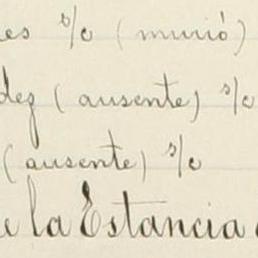 es s/c (murió)
dez (ausente) s/c
(ausente) s/c
e la Estancia